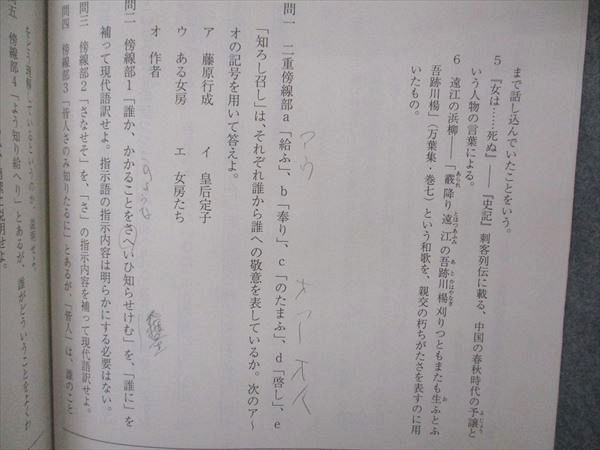 まで話し込んでいたことをいう。
5 『女は……死ぬ』――『史記』刺客列伝に載る、中国の春秋時代の予譲と
いう人物の言葉による。
6 遠江の浜柳――「霰降り遠江の吾跡川楊刈りつともまたも生ふとふ
吾跡川楊」(万葉集 巻七)という和歌を、親交の朽ちがたさを表すのに用
いたもの。
問一 二重傍線部a「給ふ」、b「奉り」、c「のたまふ」、d「啓し」、e
「知ろし召し」は、それぞれ誰から誰への敬意を表しているか。次のア〜
オの記号を用いて答えよ。
ア 藤原行成 イ 皇后定子
ウ ある女房 エ 女房たち
オ 作者
問二 傍線部1「誰か、かかることをさへいひ知らせけむ」を、「誰に」を
補って現代語訳せよ。指示語の指示内容は明らかにする必要はない。
のような
問三 傍線部2「さなせそ」を、「さ」の指示内容を補って現代語訳せよ。
問四 傍線部3「皆人さのみ知りたるに」とあるが、「皆人」は、誰のこと
をどう理解しているというのか、説明せよ。
五 傍線部4「よう知り給へり」とあるが、誰がどういうことをよく
説明せよ。